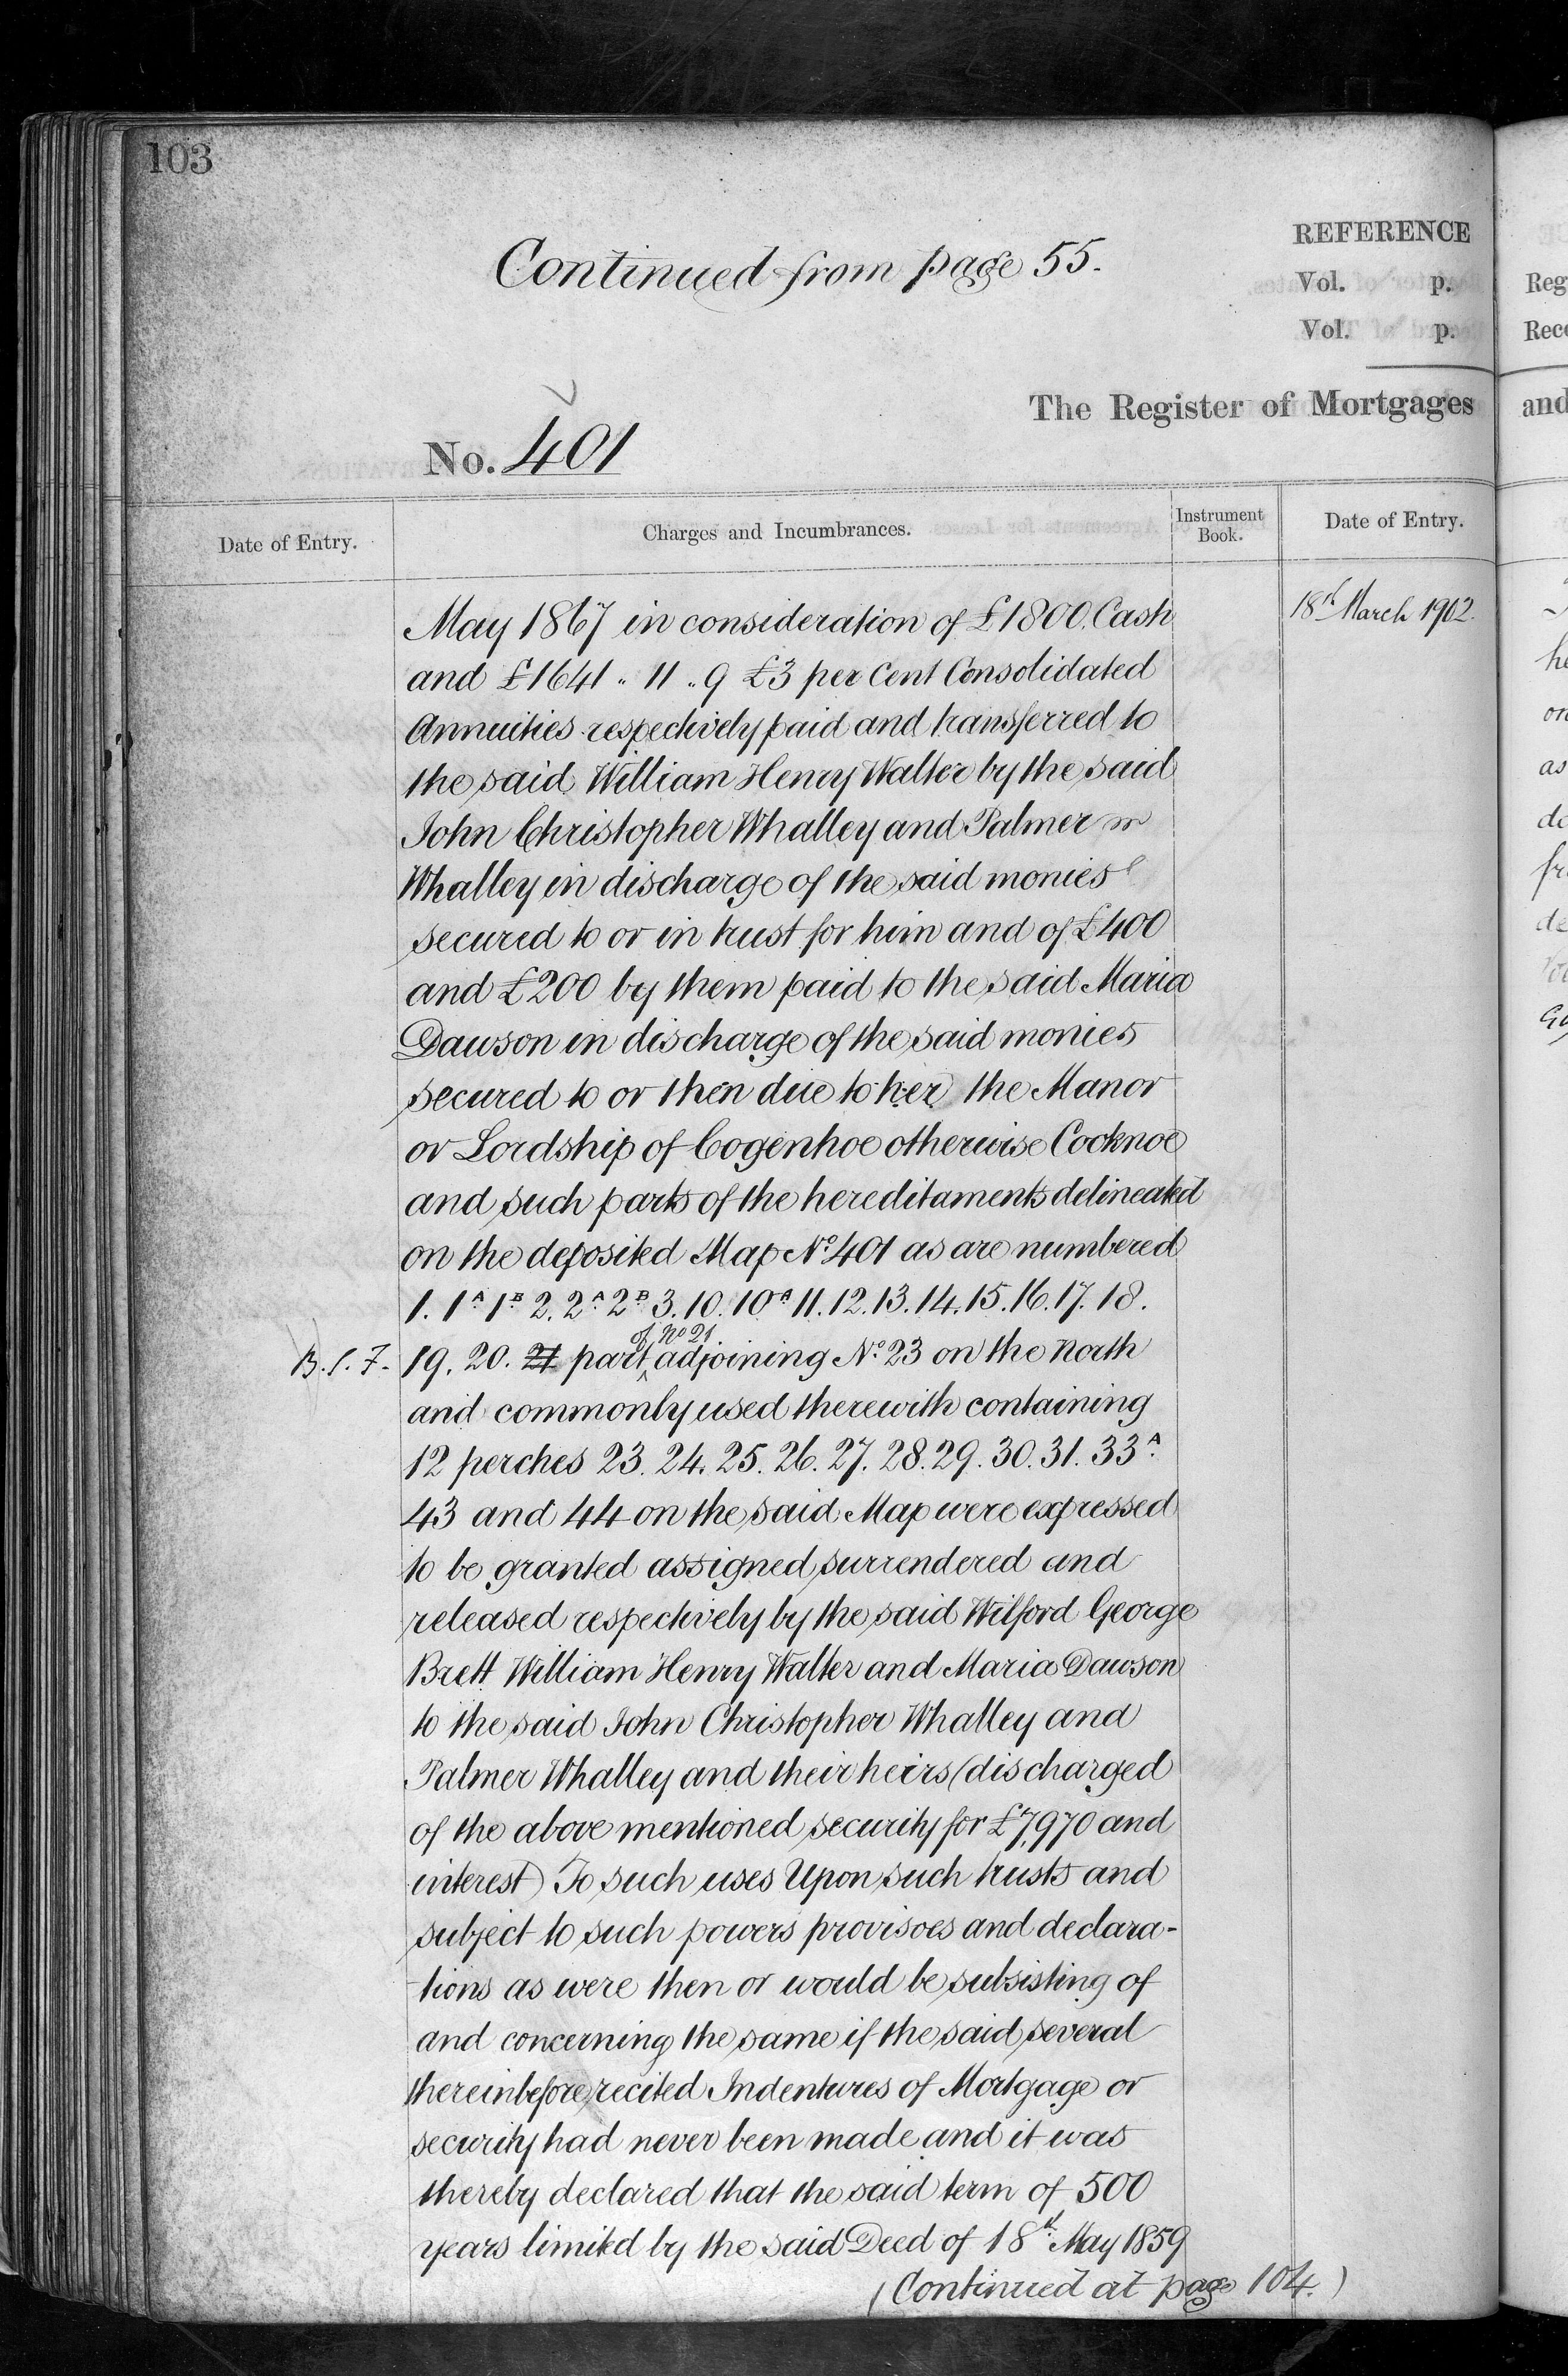 103
Continued from page 55.
REFERENCE
Vol. p.
Vol. p.
The Register of Mortgages
No. 401
Date of Entry.
Charges and Incumbrances.
Instrument Book.
Date of Entry.
18th March 1902.
May 1867 in consideration of £1800 Cash
and £1641 .. 11 .. 9 £3 per Cent Consolidated
Annuities respectively paid and transferred to
the said William Henry Walter by the said
John Christopher Whalley and Palmer
Whalley in discharge of the said monies
secured to or in trust for him and of £400
and £200 by them paid to the said Maria
Dawson in discharge of the said monies
secured to or then due to her the Manor
or Lordship of Cogenhoe otherwise Cooknoe
and such parts of the hereditaments delineated
on the deposited Map No. 401 as are numbered
1. 1A 1B 2. 2A 2B 3. 10. 10A 11. 12. 13. 14. 15. 16. 17. 18.
of No 21
19. 20. 21 part adjoining No. 23 on the North
and commonly used therewith containing
12 perches 23. 24. 25. 26. 27. 28. 29. 30. 31. 33A.
43 and 44 on the said Map were expressed
to be granted assigned surrendered and
released respectively by the said Wilford George
Brett William Henry Walter and Maria Dawson
to the said John Christopher Whalley and
Palmer Whalley and their heirs (discharged
of the above mentioned security for £7,970 and
interest) To such uses Upon such trusts and
subject to such powers provisoes and declara-
tions as were then or would be subsisting of
and concerning the same if the said several
thereinbefore recited Indentures of Mortgage or
security had never been made and it was
thereby declared that the said term of 500
years limited by the said Deed of 18th. May 1859
(Continued at page 104.)